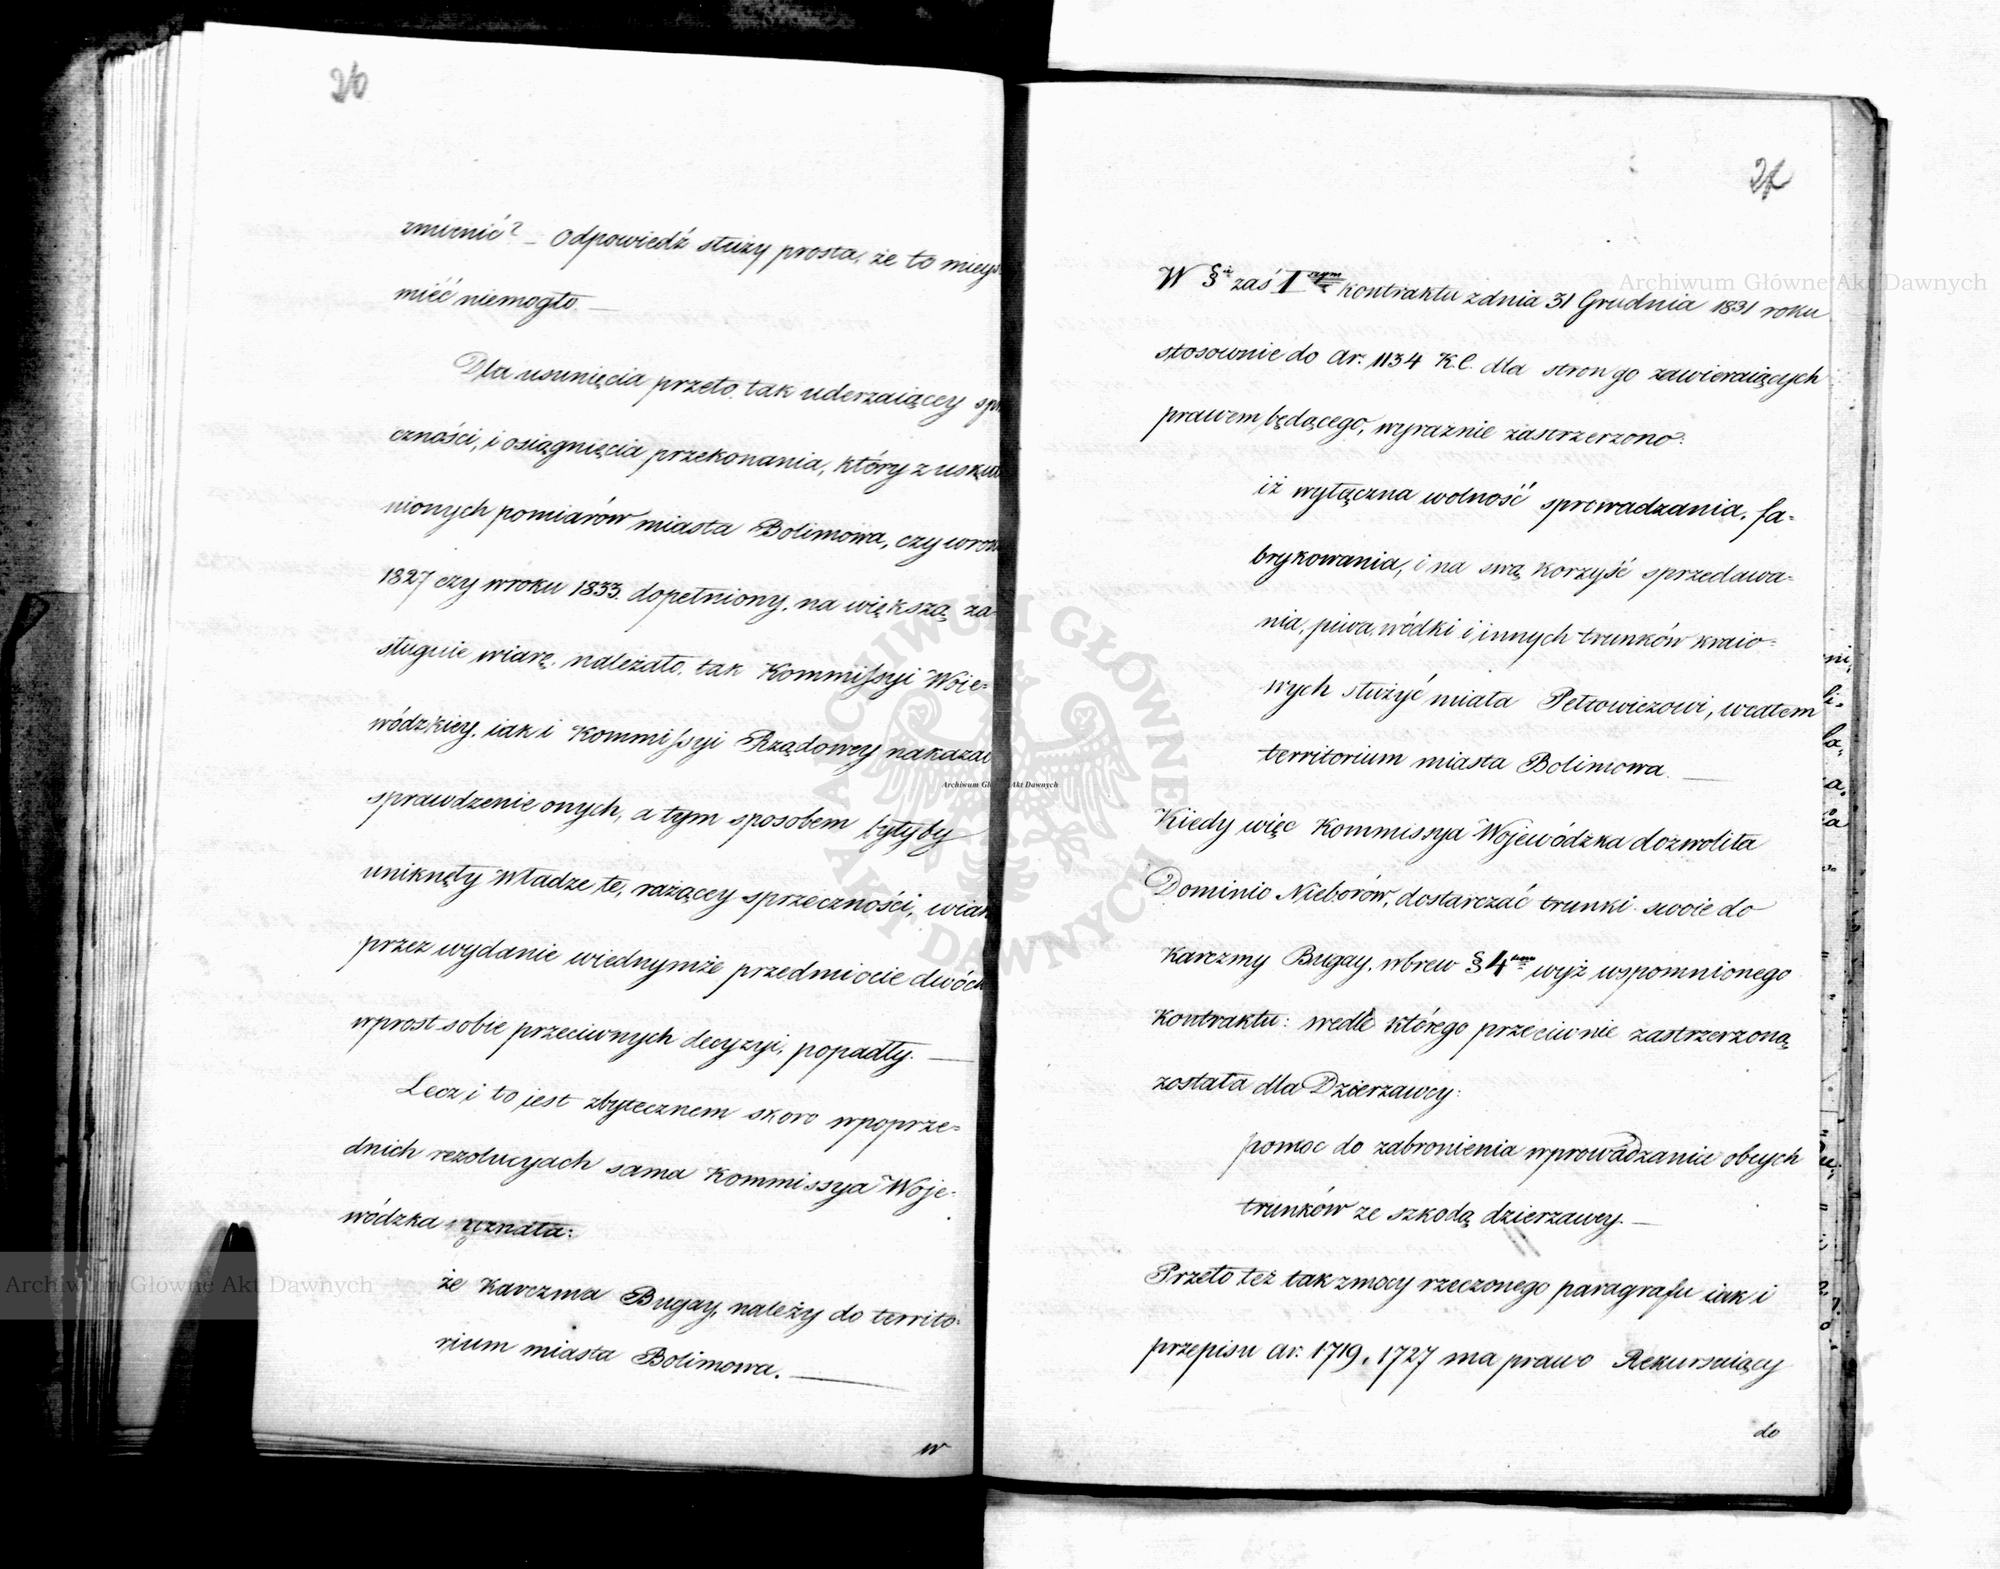 26
zmienić? – Odpowiedź służy prosta, że to miejs
mieć niemogło. —
Dla usunięcia przeto, tak uderzaiącey sprz
czności, i osiągnięcia przekonania, który z uskut
nionych pomiarów miasta Bolimowa, czy wrok
1827 czy wroku 1833. dopełniony, na większą za
sługuie wiarę, należało, tak Kommissyi Woje=
wódzkiey, iak i Kommissyi Rządowey nakazać
sprawdzenie onych, a tym sposobem byłyby
uniknęły Władze te, rażącey sprzeczności, wiak
przez wydanie wiednymże przedmiocie dwóch
wprost sobie przeciwnych decyzyi, popadły. —
Lecz i to jest zbytecznem skoro wpoprze=
dnich rezolucyach sama Kommissya Woje=
wódzka uznała:
że Karczma Bugay, należy do territo=
rium miasta Bolimowa. —
w
W §ie zaś I szym kontraktu zdnia 31 Grudnia 1831 roku
stosownie do Ar. 1134 K.C. dla stron go zawieraiących
prawem będącego, wyraznie zastrzerzono:
iż wyłączna wolność sprowadzania, fa=
brykowania, i na swą korzyść sprzedawa=
nia, piwa, wódki i innych trunków kraio=
wych służyć miała Petrowiczowi, wcałem
territorium miasta Bolimowa. —
Kiedy więc Kommissya Wojewódzka dozwoliła
Dominio Nieborów, dostarczać trunki swoie do
Karczmy Bugay, wbrew § 4 wyż wspomnionego
kontraktu: wedle którego przeciwnie zastrzerzoną
została dla Dzierzawcy:
pomoc do zabronienia wprowadzania obcych
trunków ze szkodą dzierzawcy. —
Przeto też tak zmocy rzeczonego paragrafu iak i
przepisu Ar. 1719, 1727 ma prawo Rekursuiący
do
Archiwum Główne Akt Dawnych
Archiwum Główne Akt Dawnych
Archiwum Główne Akt Dawnych
ARCHIWUM GŁÓWNE AKT DAWNYCH